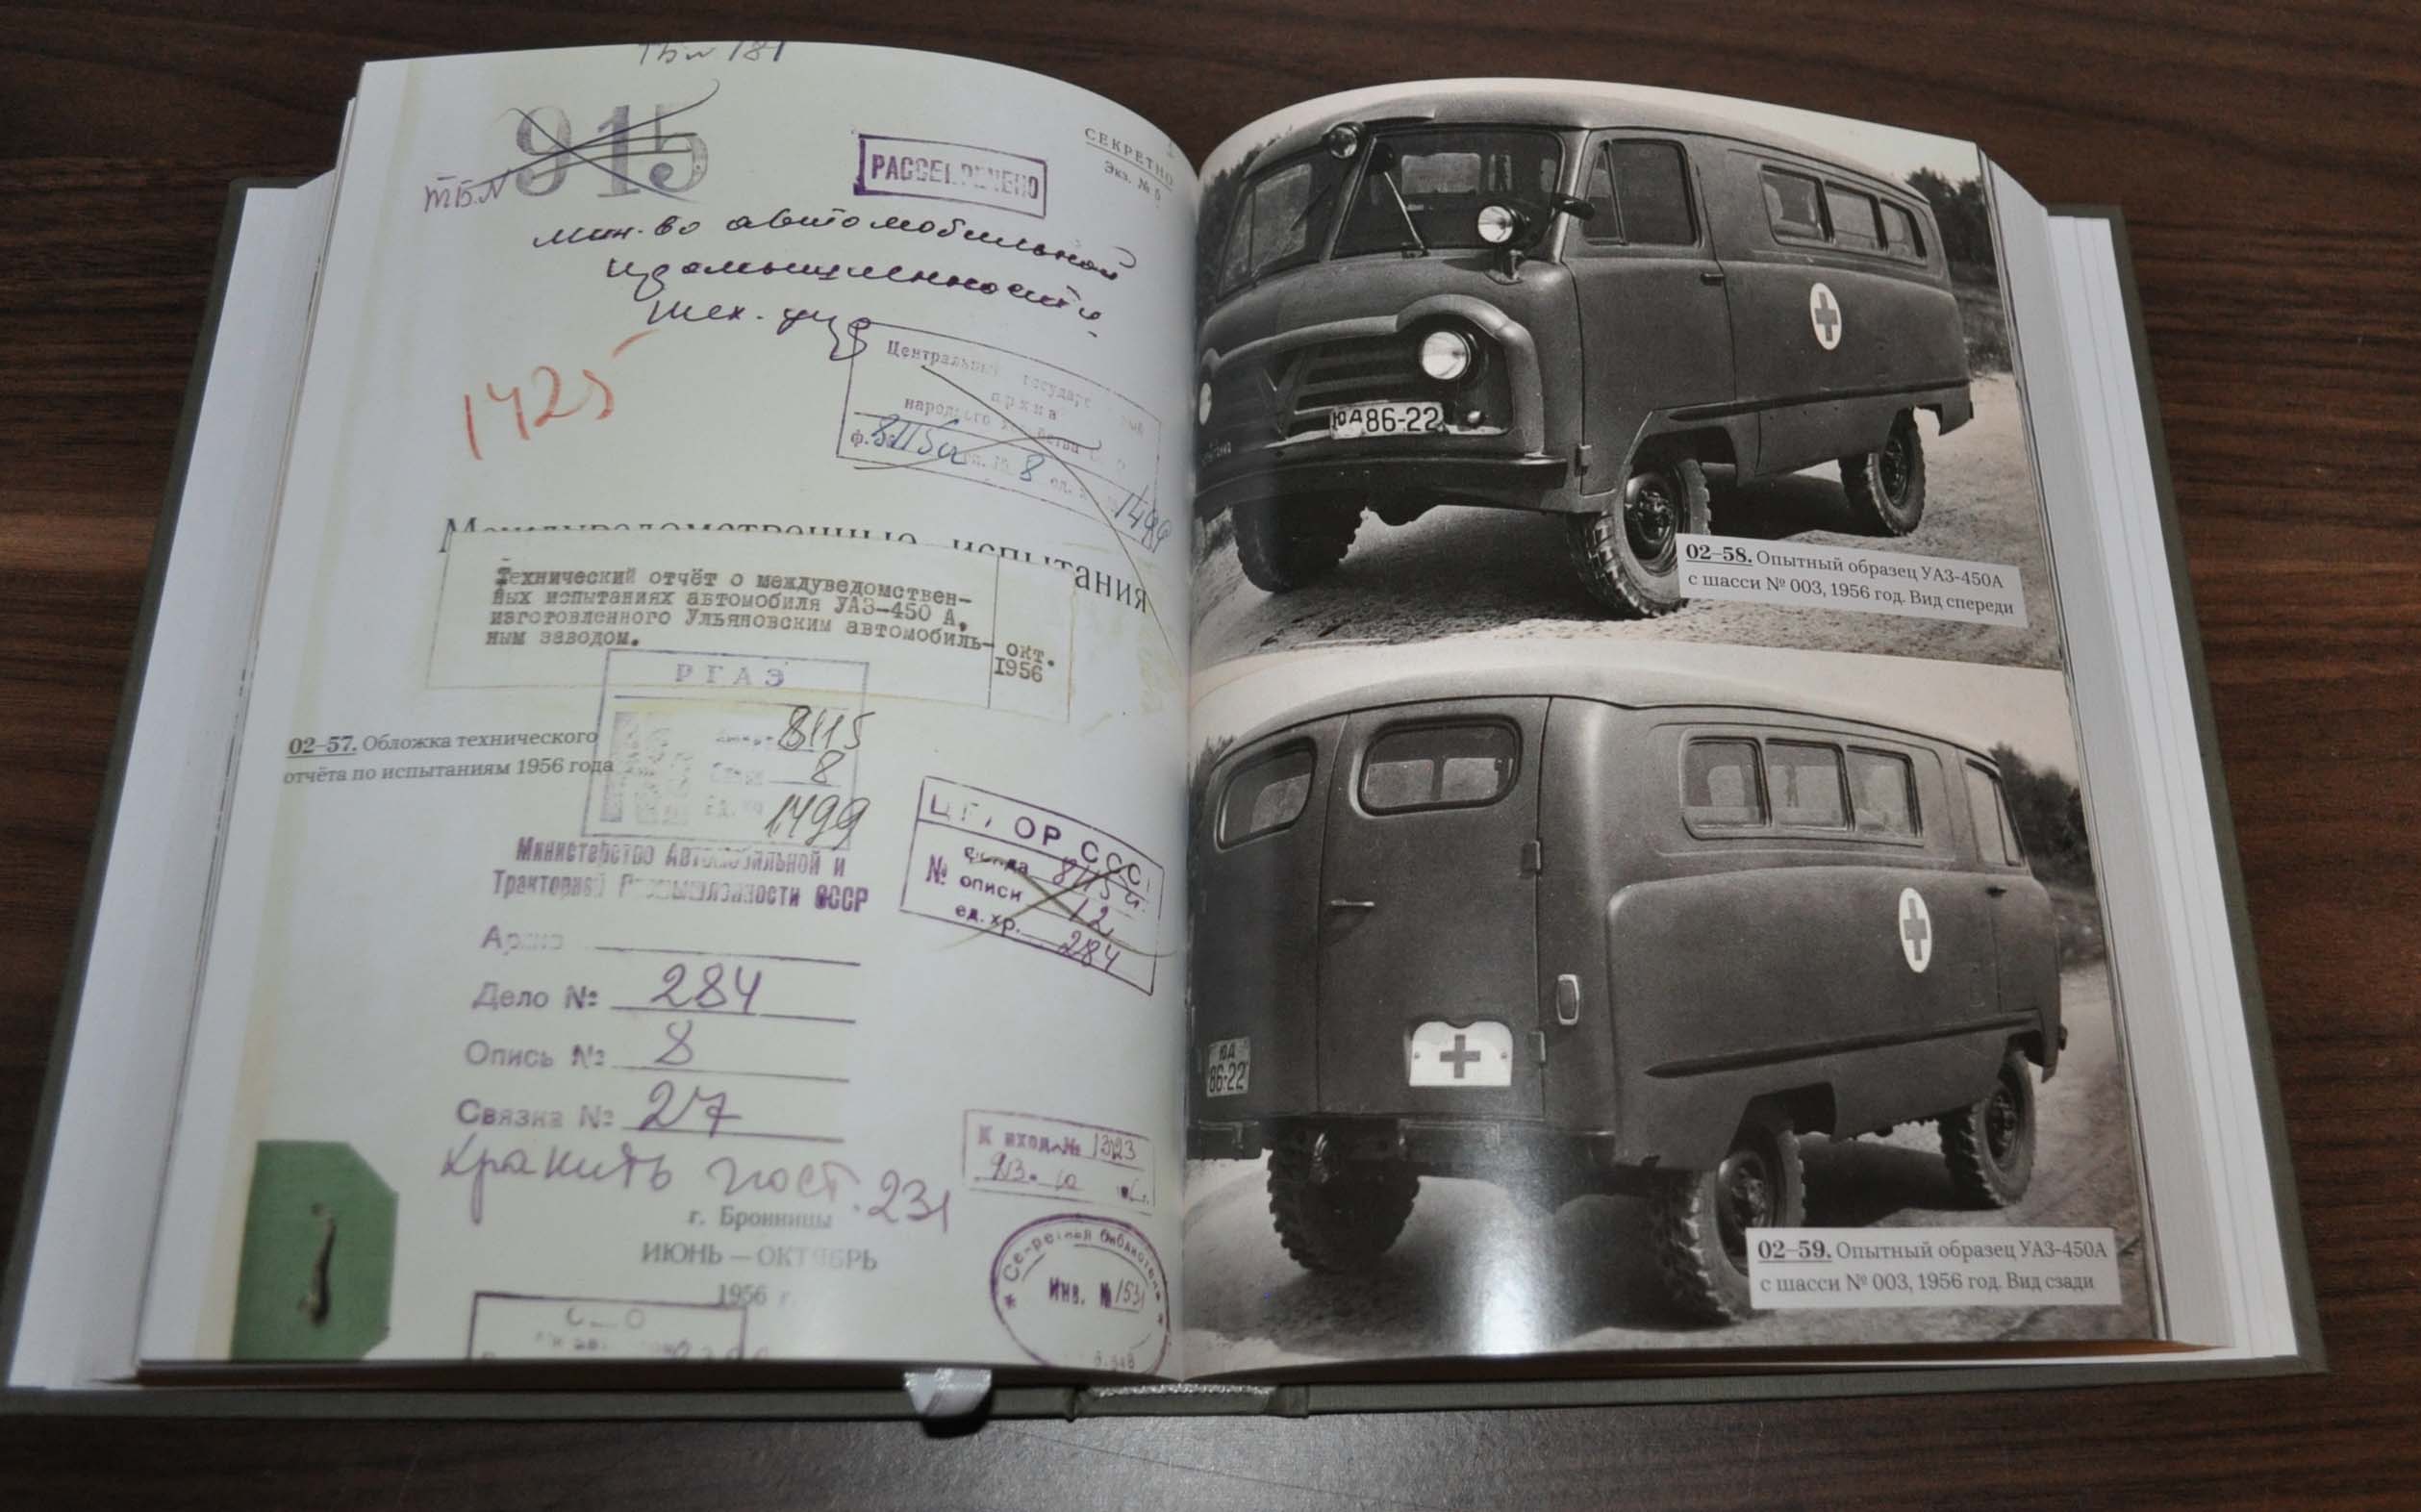 915
т.Б.N
РАССЕКРЕЧЕНО
СЕКРЕТНО
Экз. №
мин-во автомобильной
промышленности
тех. упр
1425
Центральный государственный
архив
народного хозяйства
ф. 8115 оп. № 8 ед. х 1499
Междуведомственные испытания
Технический отчёт о междуведомствен-
ных испытаниях автомобиля УАЗ-450 А,
изготовленного Ульяновским автомобиль-
ным заводом.
окт.
1956
РГАЭ
8115
8
Ед. хр 1499
02–57. Обложка технического
отчёта по испытаниям 1956 года
Министерство Автомобильной и
Тракторной Промышленности СССР
ЦГАОР СССР
фонда 8115
№ описи 12
ед. хр. 284
Архив
Дело № 284
Опись № 8
Связка № 27
Хранить пост. 231
К вход. № 1323
г. Бронницы
ИЮНЬ — ОКТЯБРЬ
1956 г.
Секретная библиотека
Инв. № 153
ЮА86-22
02–58. Опытный образец УАЗ-450А
с шасси № 003, 1956 год. Вид спереди
ЮА
86-22
02–59. Опытный образец УАЗ-450А
с шасси № 003, 1956 год. Вид сзади